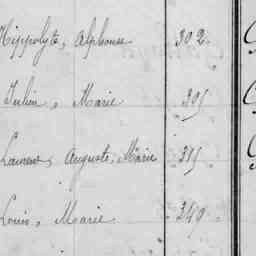 Hippolyte, Alphonse 302
Julien, Marie 305
Laurent, Auguste, Marie 315
Louis, Marie 340